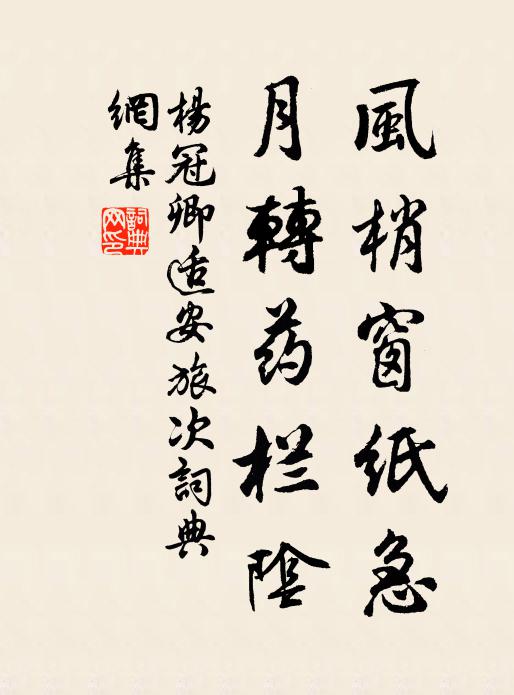 風梢窗紙急
月轉药栏陰
楊冠卿适安旅次詞典
網集
詞典
网印